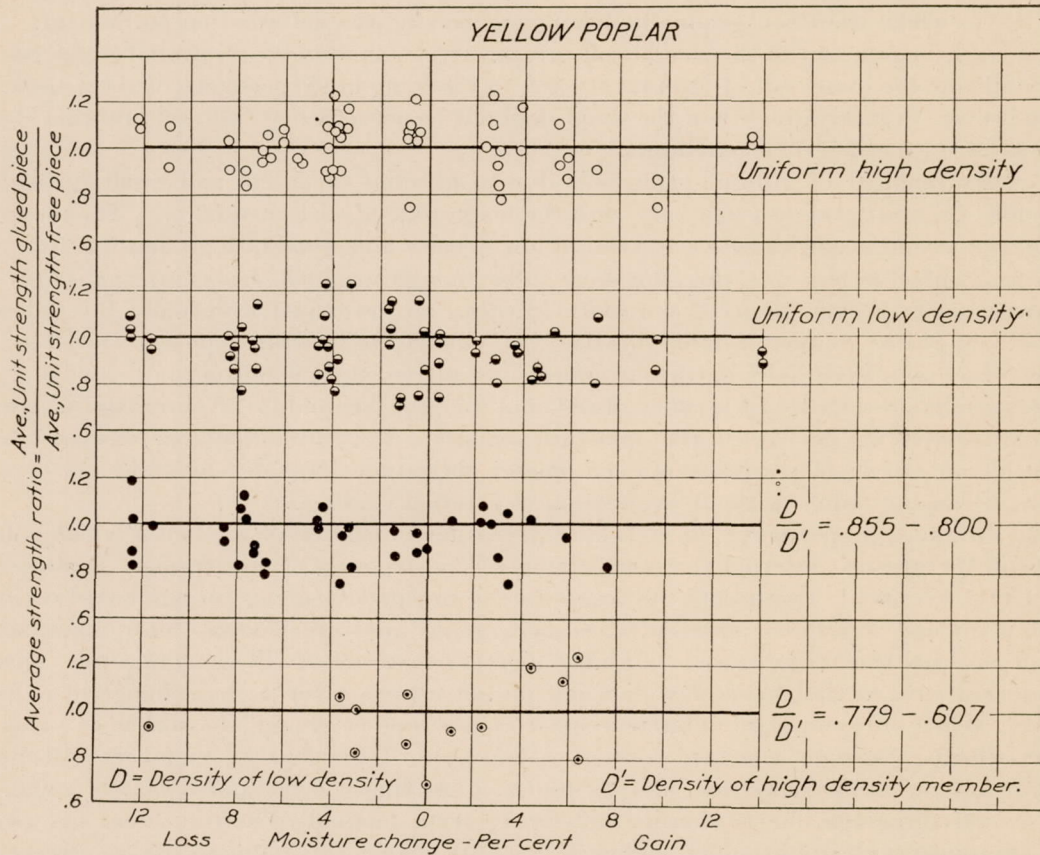 YELLOW POPLAR
Average strength ratio = Ave., Unit strength glued piece
Ave., Unit strength free piece
1.2
1.0
.8
.6
Uniform high density
1.2
1.0
.8
.6
Uniform low density.
1.2
1.0
.8
.6
D
D' = .855 - .800
1.2
1.0
.8
.6
D
D' = .779 - .607
D = Density of low density
D' = Density of high density member.
12 8 4 0 4 8 12
Loss Moisture change - Per cent Gain